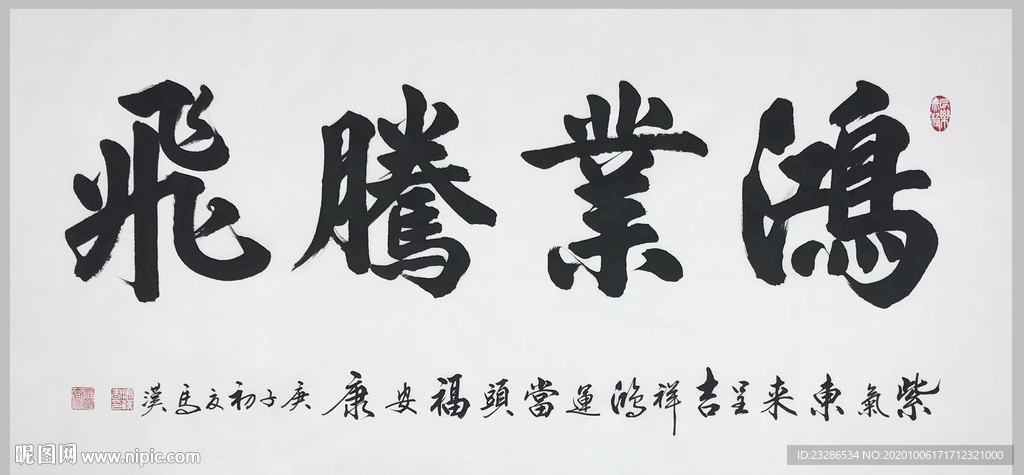 鴻業騰飛
紫氣東来呈吉祥鴻運當頭福安康庚子初夏馬漢
昵图网 www.nipic.com
ID:23286534 NO:20201006171712321000